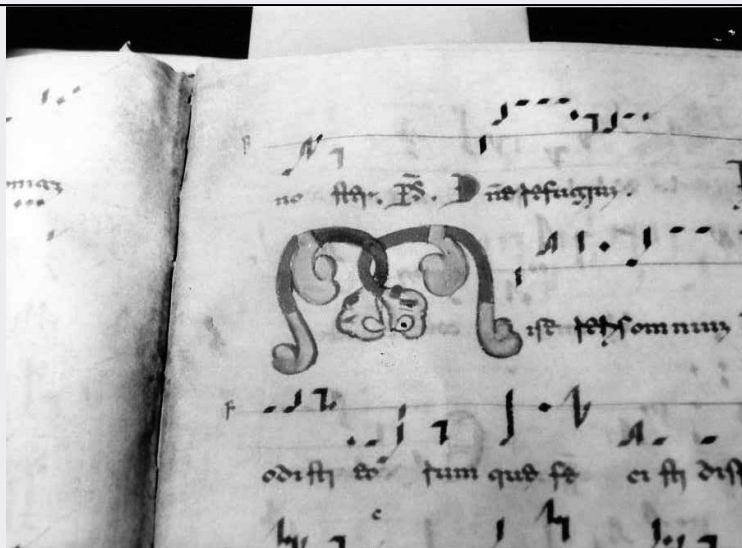 no ster. P̄s. Dn̄e refugiu.
Mise reris omnium
odisti eo rum que fe ci sti diss